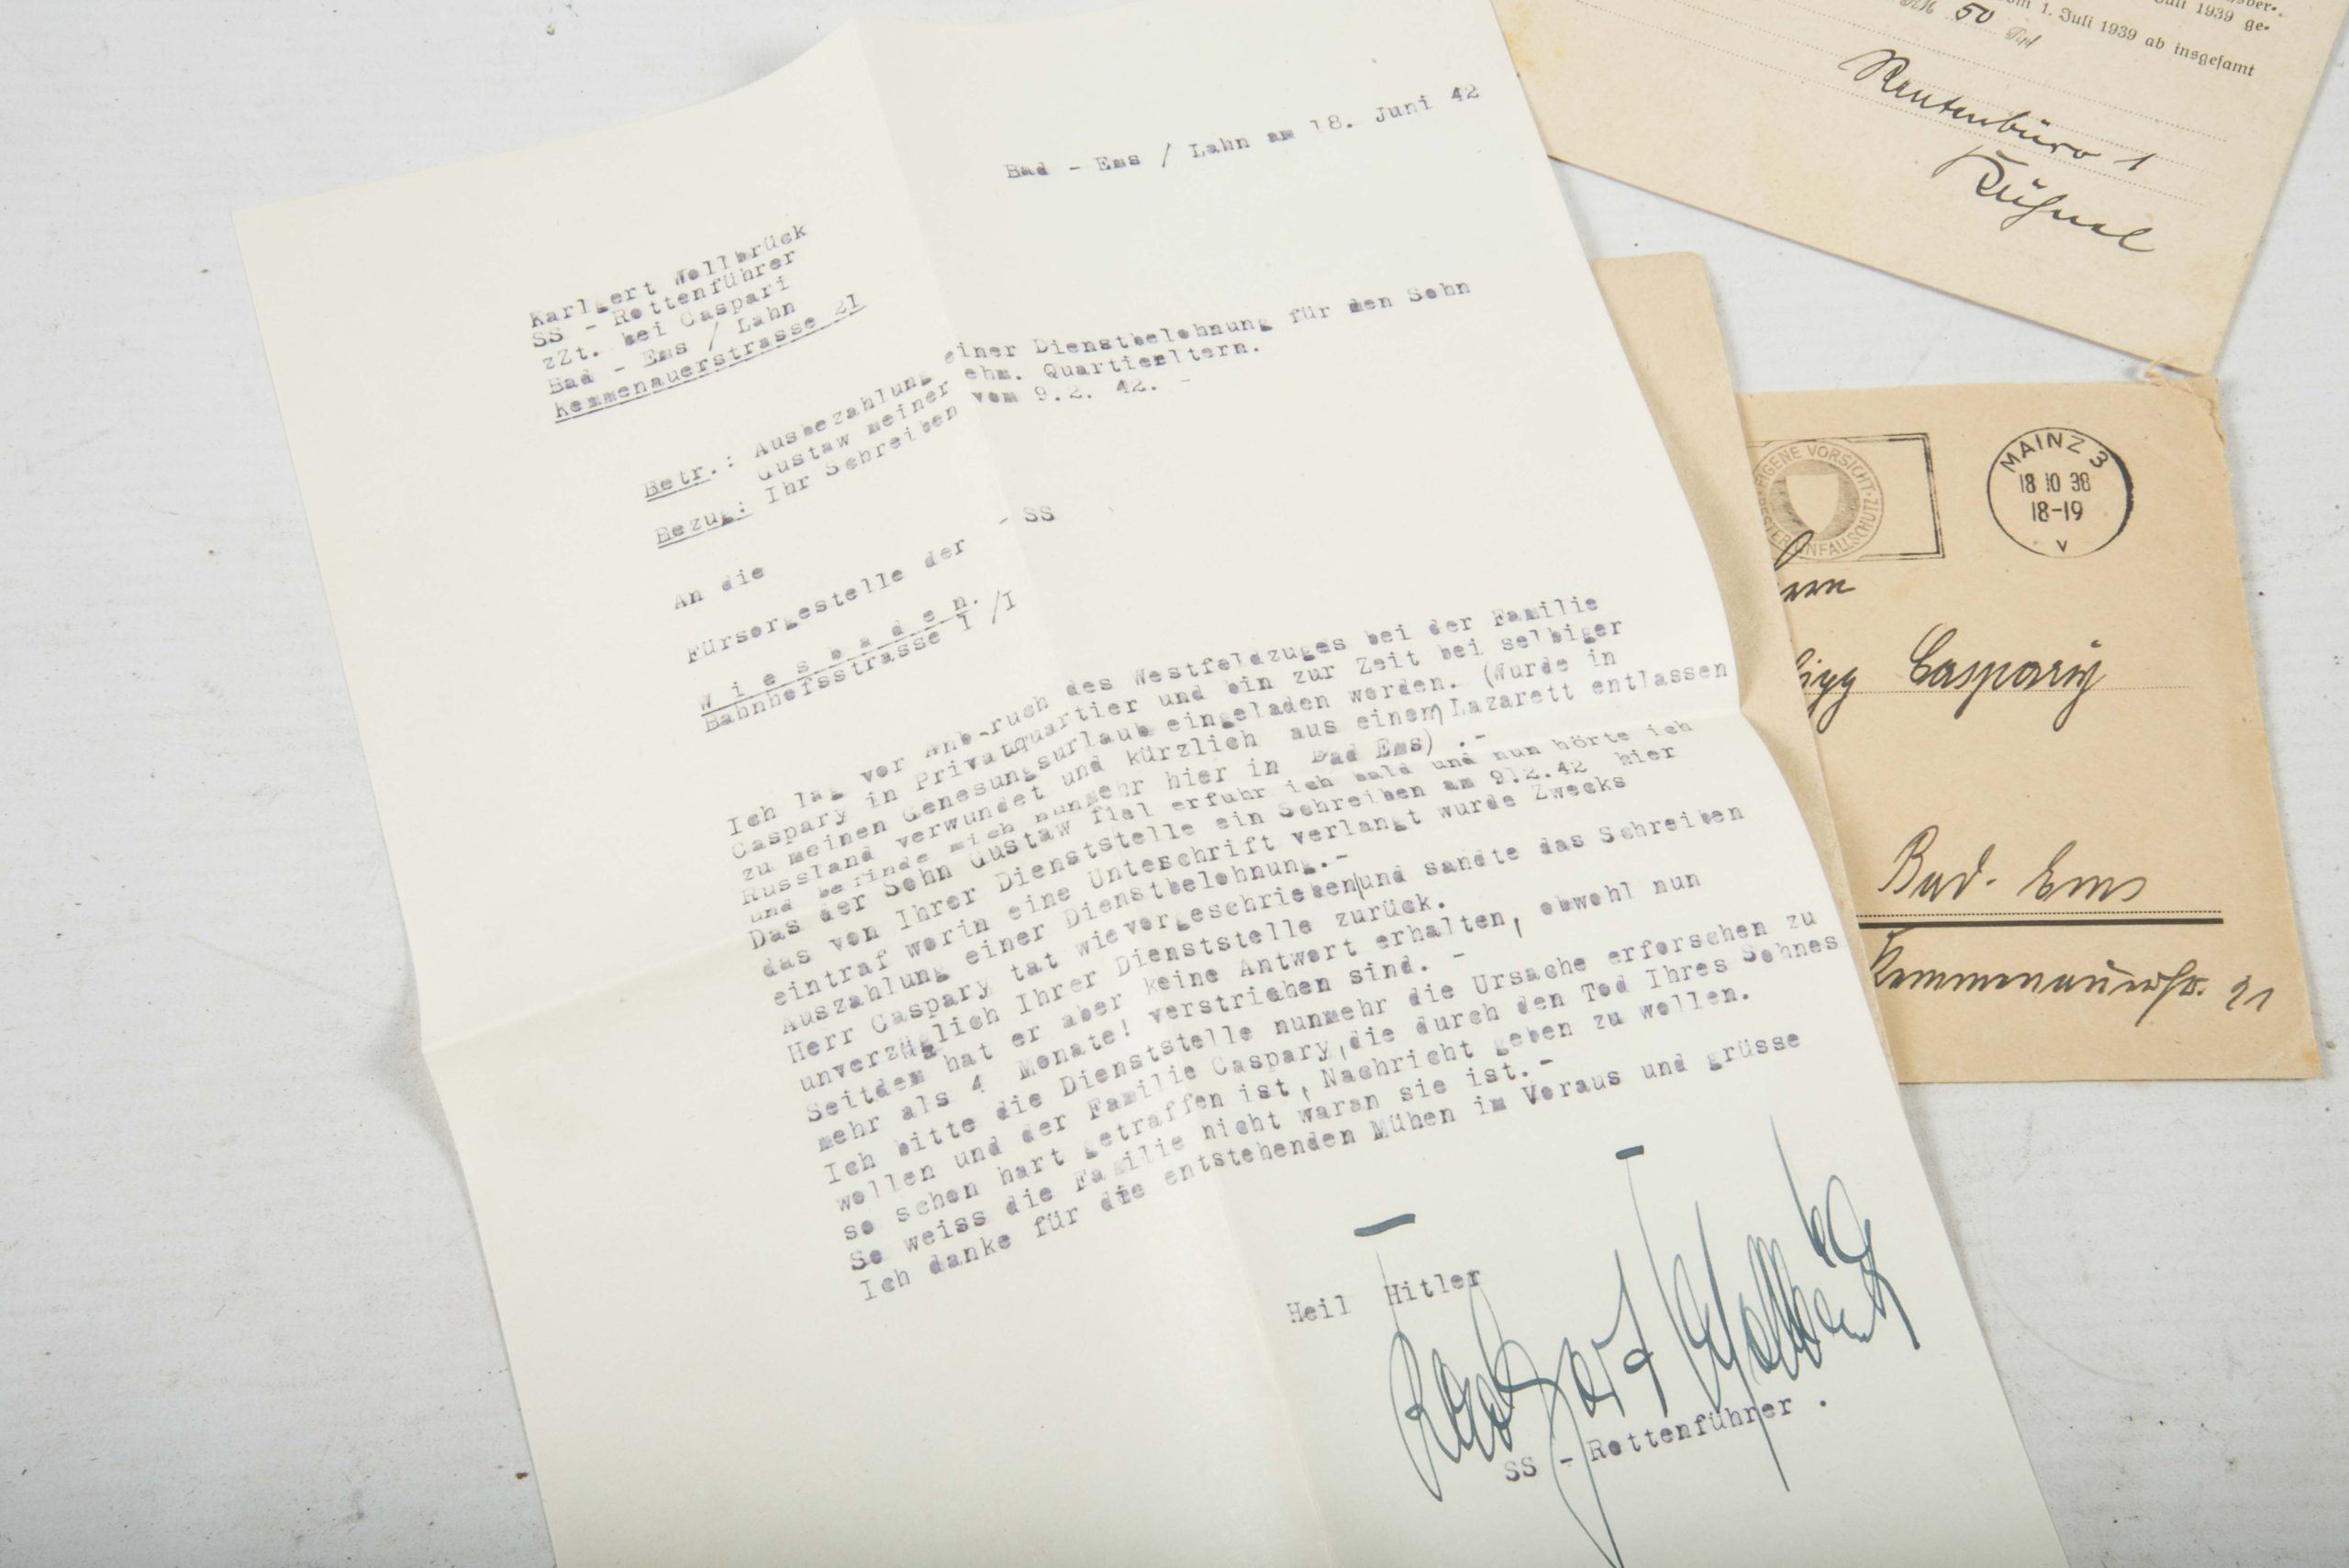 Bad - Ems / Lahn am 18. Juni 42
Karlgert Wollbrück
SS - Rottenführer
zZt. bei Caspari
Bad - Ems / Lahn
Kemmenauerstrasse 21
Betr.: Ausbezahlung einer Dienstbelohnung für den Sohn
Gustaw meiner ehm. Quartierltern.
Bezug: Ihr Schreiben vom 9.2. 42. -
An die
Fürsorgestelle der - SS
W i e s b a d e n.
Bahnhofsstrasse 1 /I
Ich lag vor Anb-ruch des Westfeldzuges bei der Familie
Caspary in Privatquartier und bin zur Zeit bei selbiger
zu meinen Genesungsurlaub eingeladen worden. (Wurde in
Russland verwundet und kürzlich aus einem Lazarett entlassen
und befinde mich nunmehr hier in Bad Ems) .-
Das der Sohn Gustaw fiel erfuhr ich bald und nun hörte ich
das von Ihrer Dienststelle ein Schreiben am 9.2.42 hier
eintraf worin eine Unterschrift verlangt wurde Zwecks
Auszahlung einer Dienstbelohnung.-
Herr Caspary tat wie vorgeschrieben und sandte das Schreiben
unverzüglich Ihrer Dienststelle zurück.
Seitdem hat er aber keine Antwort erhalten, obwohl nun
mehr als 4 Monate! verstrichen sind. -
Ich bitte die Dienststelle nunmehr die Ursache erforschen zu
wollen und der Familie Caspary,die durch den Tod Ihres Sohnes
so schon hart getraffen ist, Nachricht geben zu wollen.
So weiss die Familie nicht waran sie ist.-
Ich danke für die entstehenden Mühen im Voraus und grüsse
Heil Hitler
SS - Rottenführer .
Juli 1939 ge-
vom 1. Juli 1939 ab insgesamt
RM 50 Rpf
Rentenbüro 1
EIGENE VORSICHT
BESTER UNFALLSCHUTZ
MAINZ 3
18 10 38
18-19
v
Caspary
Bad. Ems
Kemmenauerstr. 21